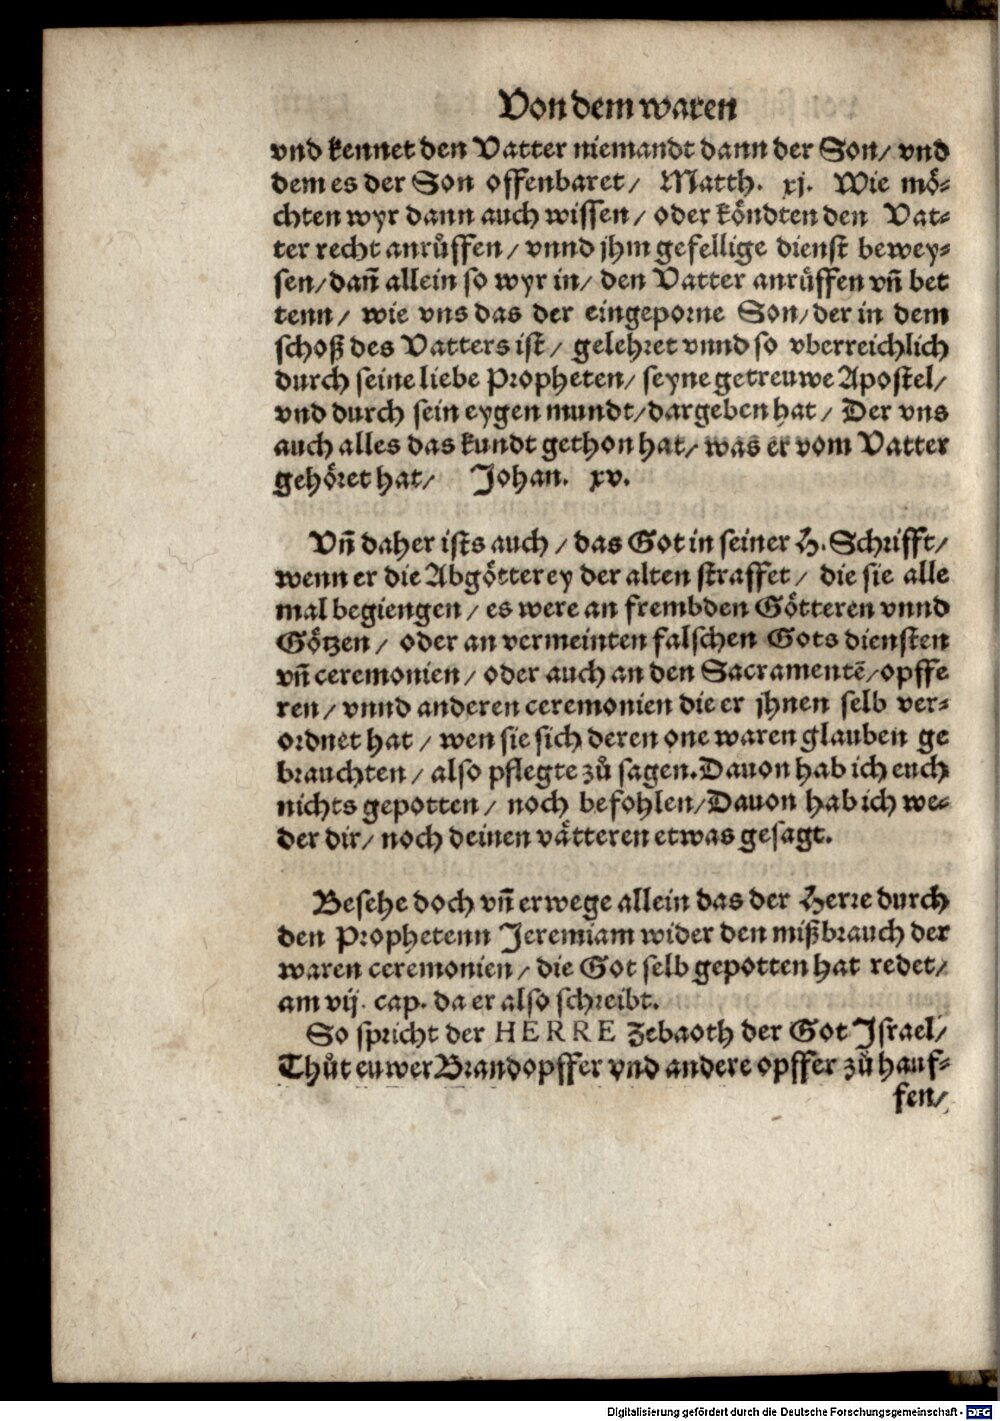 Von dem waren
vnd kennet den Vatter niemandt dann der Son/ vnd
dem es der Son offenbaret/ Matth. xj. Wie mö-
chten wyr dann auch wissen/ oder köndten den Vat-
ter recht anruͤffen/ vnnd jhm gefellige dienst bewey-
sen/ dañ allein so wyr in/ den Vatter anruͤffen vñ bet
tenn/ wie vns das der eingeporne Son/ der in dem
schoß des Vatters ist/ gelehret vnnd so vberreichlich
durch seine liebe Propheten/ seyne getreuwe Apostel/
vnd durch sein eygen mundt/ dargeben hat/ Der vns
auch alles das kundt gethon hat/ was er vom Vatter
gehöret hat/ Johan. xv.
Vñ daher ists auch/ das Got in seiner H. Schrifft/
wenn er die Abgötterey der alten straffet/ die sie alle
mal begiengen/ es were an frembden Götteren vnnd
Götzen/ oder an vermeinten falschen Gots diensten
vñ ceremonien/ oder auch an den Sacramentẽ/ opffe
ren/ vnnd anderen ceremonien die er jhnen selb ver-
ordnet hat/ wen sie sich deren one waren glauben ge
brauchten/ also pflegte zů sagen. Dauon hab ich euch
nichts gepotten/ noch befohlen/ Dauon hab ich we-
der dir/ noch deinen vätteren etwas gesagt.
Besehe doch vñ erwege allein das der Herre durch
den Prophetenn Jeremiam wider den mißbrauch der
waren ceremonien/ die Got selb gepotten hat redet/
am vij. cap. da er also schreibt.
So spricht der HERRE Zebaoth der Got Israel/
Thůt euwer Brandopffer vnd andere opffer zů hauf-
fen/
Digitalisierung gefördert durch die Deutsche Forschungsgemeinschaft - DFG